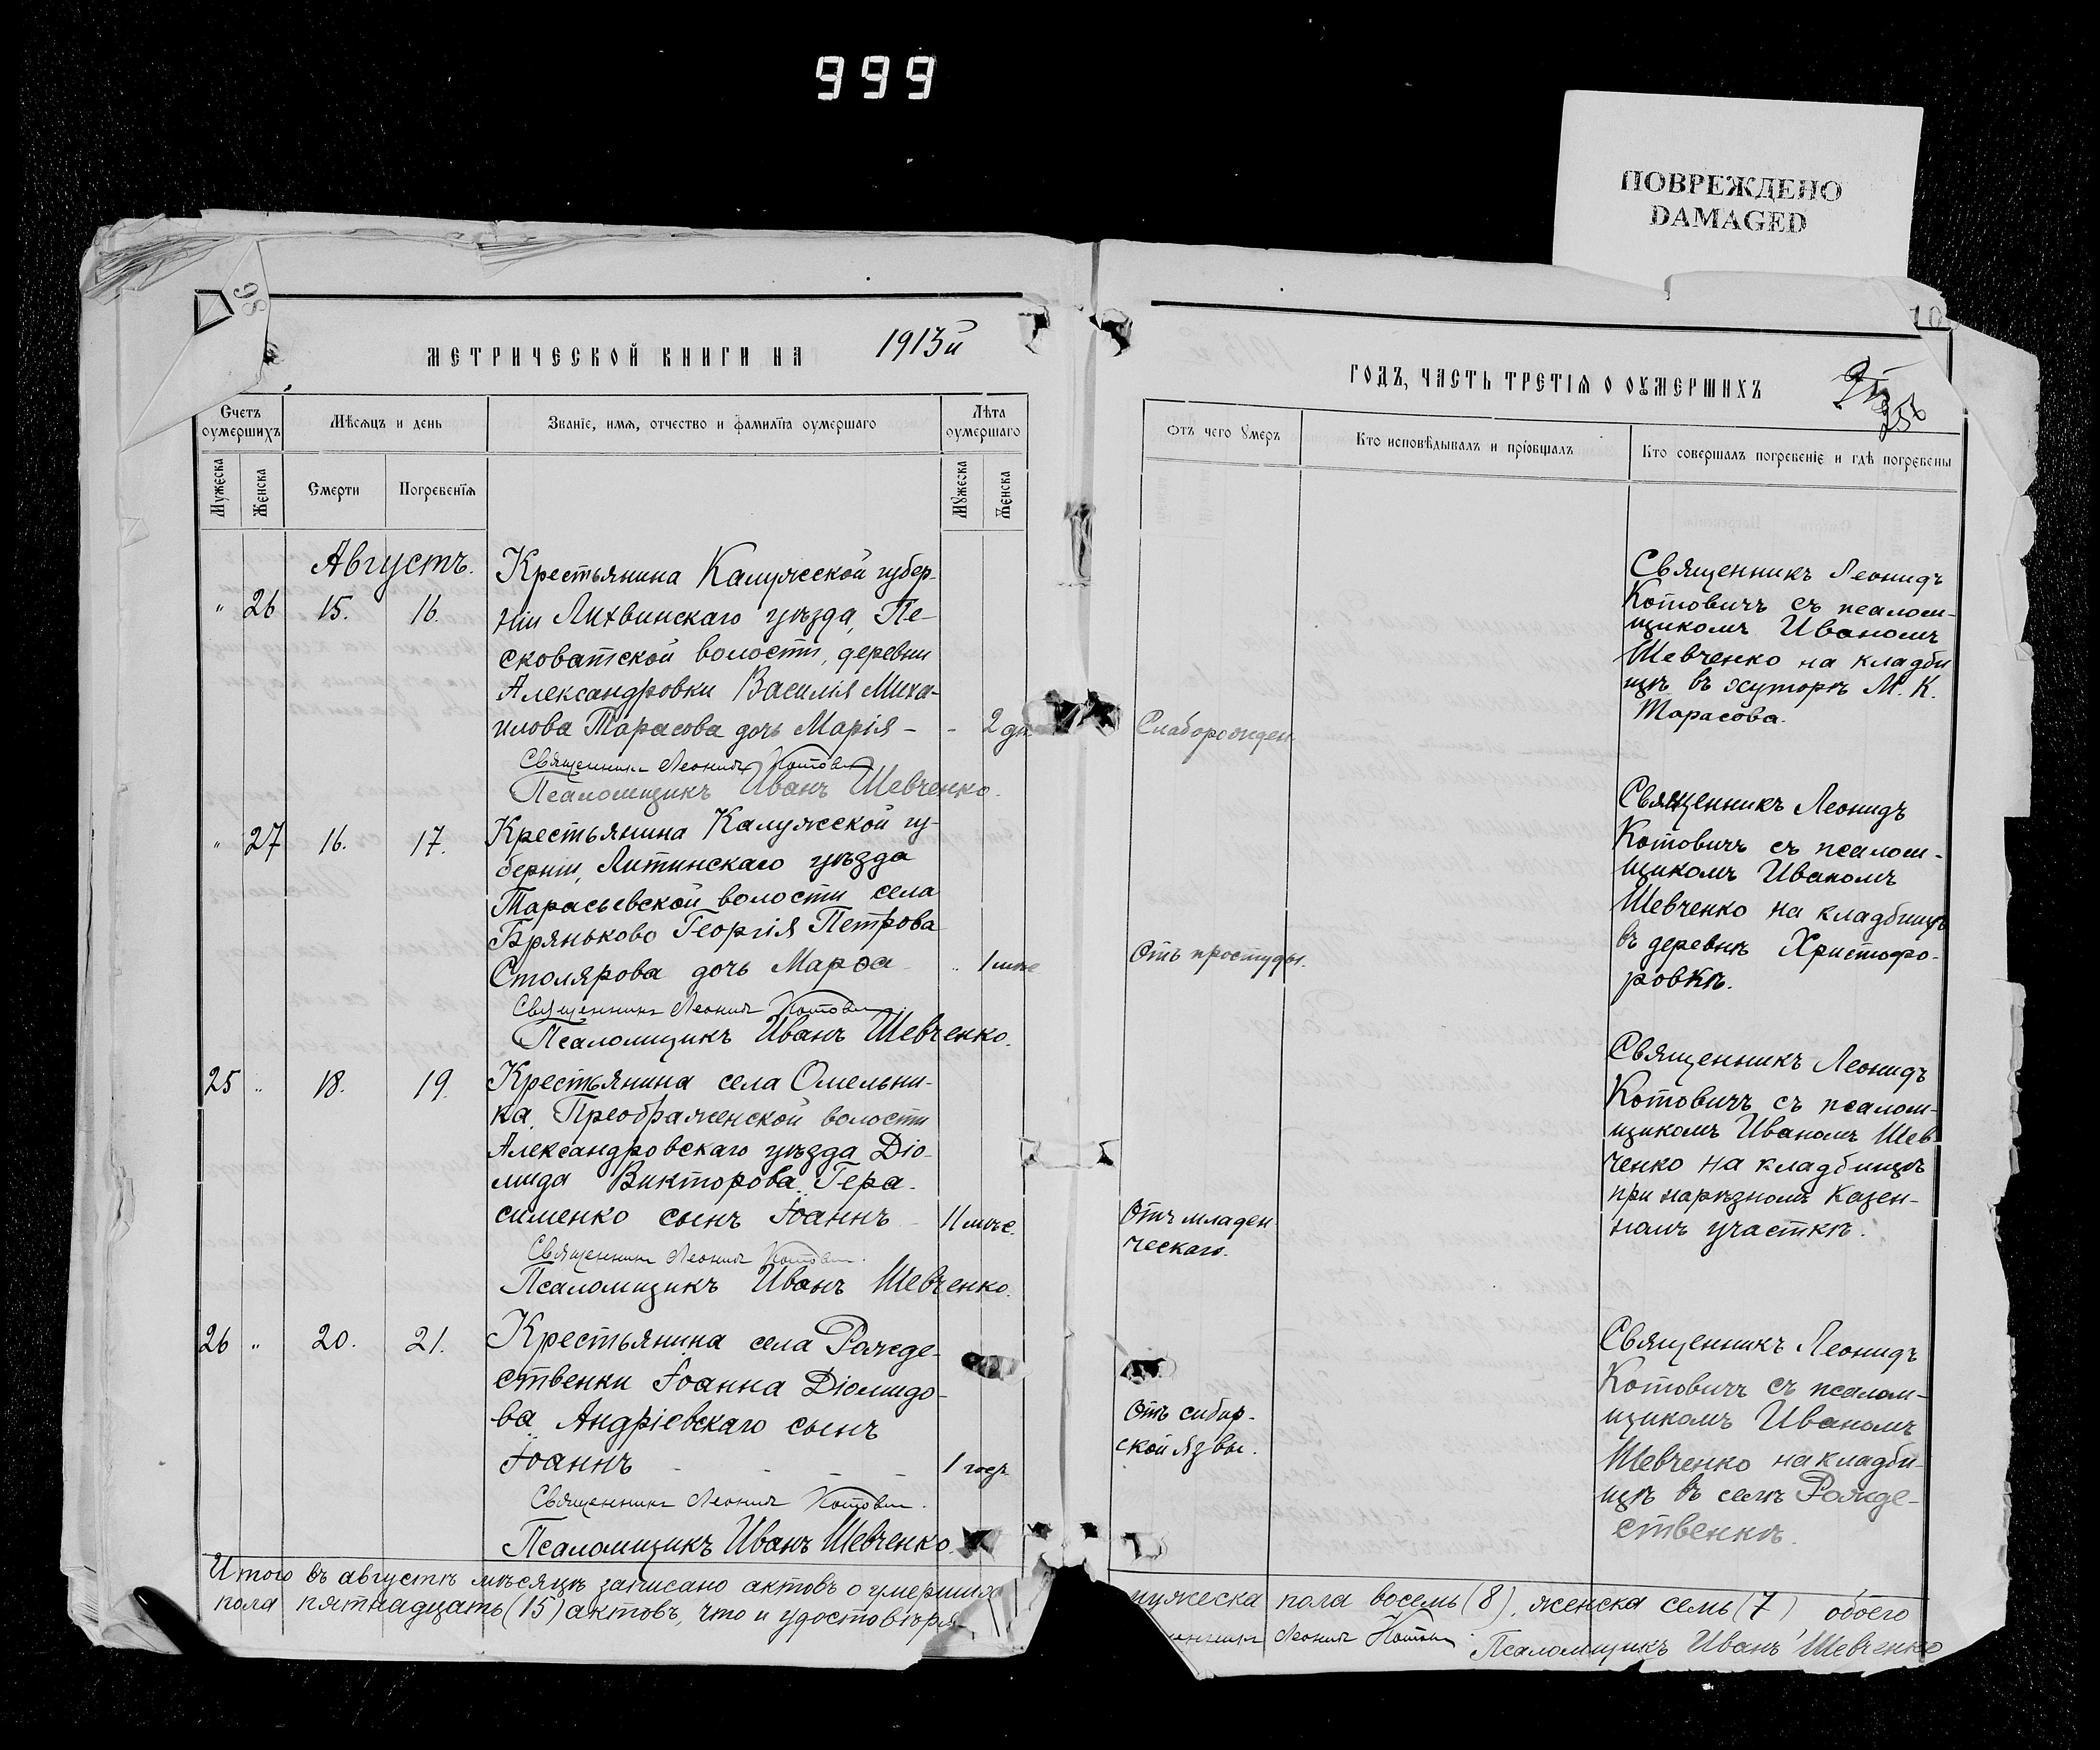 999
ПОВРЕЖДЕНО
DAMAGED
98
10
МЕТРИЧЕСКОЙ КНИГИ НА 1913й
ГОДЪ, ЧАСТЬ ТРЕТІЯ О ОУМЕРШИХЪ
Счетъ оумершихъ
Мѣсяцъ и день
Званіе, имя, отчество и фамилія оумершаго
Лѣта оумершаго
Мужеска
Женска
Смерти
Погребенія
Мужеска
Женска
Отъ чего умеръ
Кто исповѣдывалъ и пріобщалъ
Кто совершалъ погребеніе и гдѣ погребены
Августъ.
" 26 15. 16.
Крестьянина Калужской губер-
ніи Лихвинскаго уѣзда, Пе-
сковатской волости, деревни
Александровки Василія Миха-
илова Тарасова дочь Марія - - 2 дн
Священникъ Леонидъ Котович
Псаломщикъ Иванъ Шевченко.
Слаборожден.
Священникъ Леонидъ
Котовичъ съ псалом-
щикомъ Иваномъ
Шевченко на кладби
щѣ въ хуторѣ М. К.
Тарасова.
" 27 16. 17.
Крестьянина Калужской гу-
берніи, Литинскаго уѣзда
Тарасьевской волости села
Бряньково Георгія Петрова
Столярова дочь Марѳа " 1 мѣс
Священникъ Леонидъ Котович
Псаломщикъ Иванъ Шевченко.
Отъ простуды.
Священникъ Леонидъ
Котовичъ съ псалом-
щикомъ Иваномъ
Шевченко на кладбищѣ
въ деревнѣ Христофо-
ровкѣ.
25 " 18. 19.
Крестьянина села Омельни-
ка, Преображенской волости
Александровскаго уѣзда Діо-
мида Викторова Гера-
сименко сынъ Іоаннъ 11 мѣс.
Священникъ Леонидъ Котович
Псаломщикъ Иванъ Шевченко.
Отъ младен
ческаго.
Священникъ Леонидъ
Котовичъ съ псалом-
щикомъ Иваномъ Шев
ченко на кладбищѣ
при нарѣзномъ казен-
номъ участкѣ.
26 " 20. 21.
Крестьянина села Рожде-
ственки Іоанна Діомидо-
ва Андріевскаго сынъ
Іоаннъ - - - - 1 год.
Священникъ Леонидъ Котович.
Псаломщикъ Иванъ Шевченко.
Отъ сибир-
ской язвы.
Священникъ Леонидъ
Котовичъ съ псалом-
щикомъ Иваномъ
Шевченко на кладби-
щѣ въ селѣ Рожде-
ственкѣ.
Итого въ августѣ мѣсяцѣ записано актовъ о умерших мужеска пола восемь (8), женска семь (7) обоего
пола пятнадцать (15) актовъ, что и удостовѣря Леонидъ Котович Псаломщикъ Иванъ Шевченко